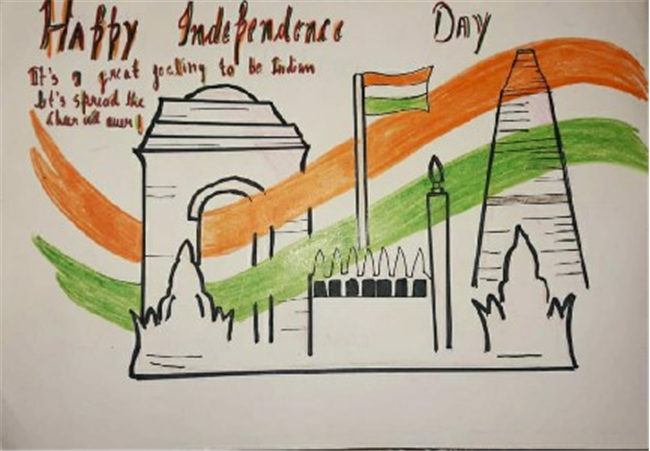 Happy Independence Day
It's a great feeling to be Indian
let's spread the
cheer all over!